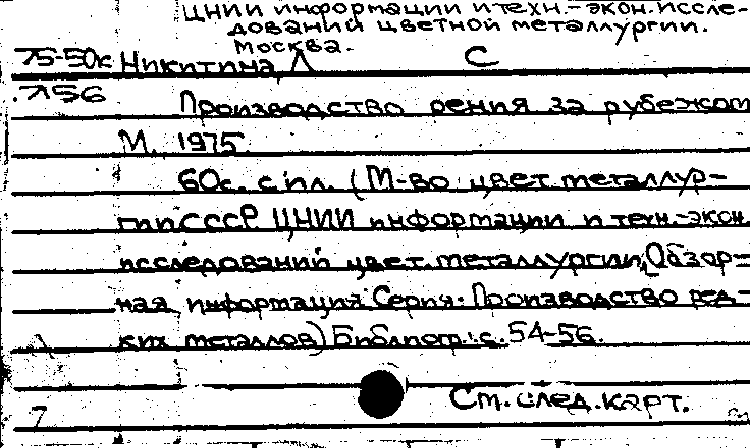 ЦНИИ информации и техн.-экон.иссле-
дований цветной металлургии.
Москва.
75-50к Никитина, Л С
7156
Производство рения за рубежом
М. 1975
60с. с ил. (М-во цвет. металлур-
гии СССР ЦНИИ информации и техн.-экон.
исследований цвет. металлургии, Обзор-
ная информация Серия: Производство ред-
ких металлов) Библиогр.: с. 54-56.
См. след. карт.
7